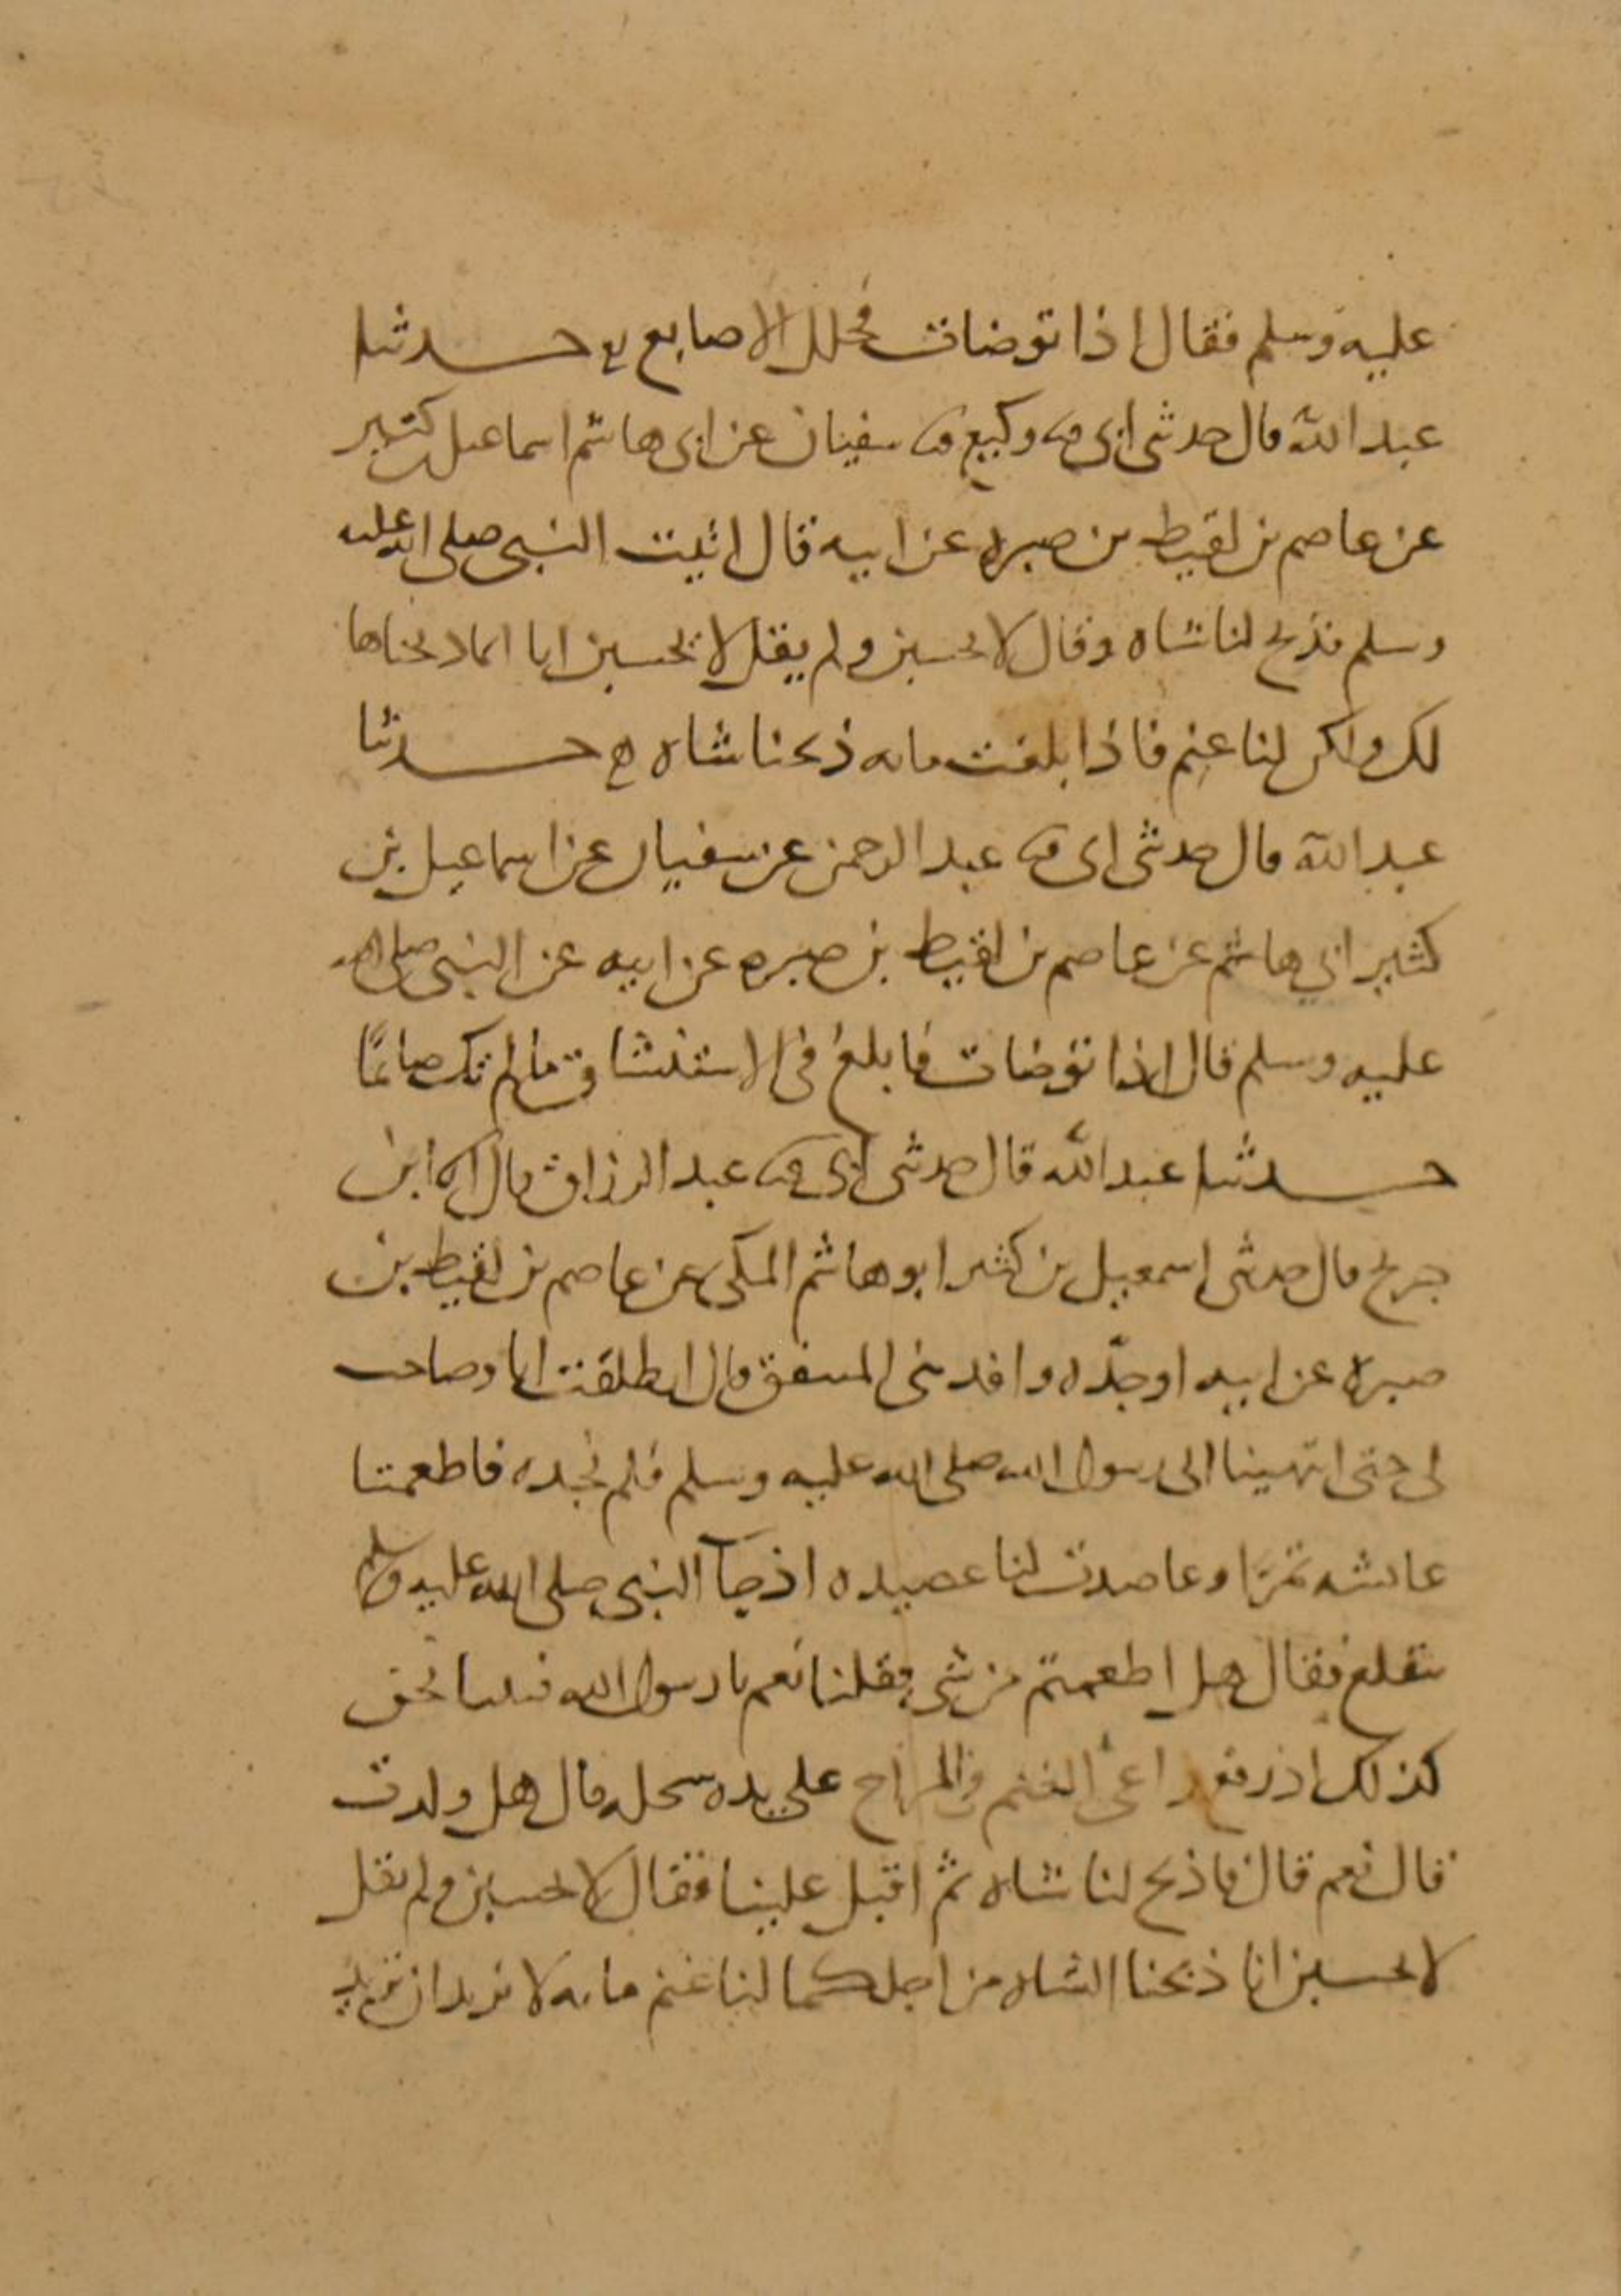 عليه وسلم فقال اذا توضات فخلل الاصابع حدثنا
عبد الله قال حدثني ابي وكيع سفيان عن ابي هاشم اسماعيل بن كثير
عن عاصم بن لقيط بن صبره عن ابيه قال اتيت النبي صلى الله عليه
وسلم فذبح لنا شاه وقال لا تحسبن ولم يقل لا تحسبن انا انما ذبحناها
لك ولكن لنا غنم فاذا بلغت مايه ذبحنا شاه حدثنا
عبد الله قال حدثني ابي عبد الرحمن عن سفيان عن اسماعيل بن
كثير ابي هاشم عن عاصم بن لقيط بن صبره عن ابيه عن النبي صلى الله
عليه وسلم قال اذا توضات فابلغ في الاستنشاق مالم تك صائمًا
حدثنا عبد الله قال حدثني ابي عبد الرزاق قال ابن
جريج قال حدثني اسمعيل بن كثير ابو هاشم المكي عن عاصم بن لقيط بن
صبره عن ابيه او جدّه وافد بني المنتفق قال انطلقت انا وصاحب
لي حتى انتهينا الى رسول الله صلى الله عليه وسلم فلم نجده فاطعمتنا
عائشه تمرًا وعصدت لنا عصيده اذ جآ النبي صلى الله عليه وسلم
يتقلع فقال هل اطعمتم من شي فقلنا نعم يا رسول الله فبينا نحن
كذلك اذ رفع راعي الغنم في المراح على يده سخله قال هل ولدت
قال نعم قال فاذبح لنا شاه ثم اقبل علينا فقال لا تحسبن ولم يقل
لا تحسبن انا ذبحنا الشاه من اجلكما لنا غنم مايه لا نريد ان تزيد